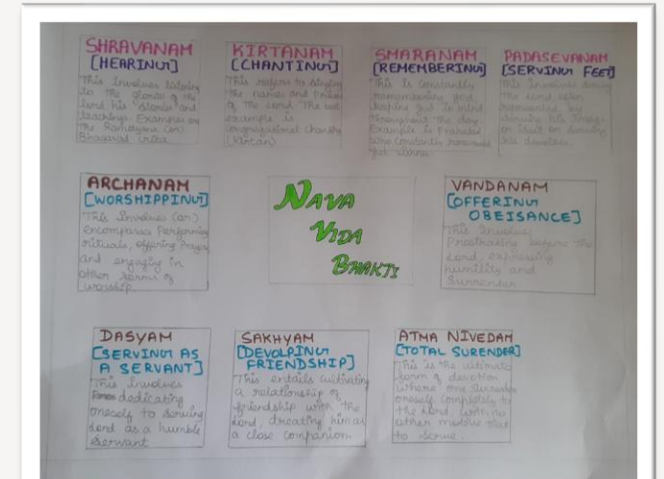 SHRAVANAM
[HEARING]
This Involves listening
to the glories of the
Lord his stories and
teachings. Examples are
the Ramayana (or)
Bhagavad Gita
KIRTANAM
[CHANTING]
This refers to singing
the names and
of the Lord. The
example is
congregational chanting
(Kirtan)
SMARANAM
[REMEMBERING]
This is constantly
remembering god
keeping god in mind
throughout the day.
Example is
who constantly
PADASEVANAM
[SERVING FEET]
This Involves
the Lord often
represented by
serving his
or
his devotees.
ARCHANAM
[WORSHIPPING]
This Involves (or)
encompasses Performing
rituals, offering Prayers
and engaging in
other forms of
worship.
NAVA
VIDA
BHAKTI
VANDANAM
[OFFERING
OBEISANCE]
This Involves
Prostrating before the
Lord, expressing
humility and
Surrender
DASYAM
[SERVING AS
A SERVANT]
This Involves
dedicating
oneself to serving
Lord as a humble
Servant
SAKHYAM
[DEVOLPING
FRIENDSHIP]
This entails cultivating
a relationship of
friendship with the
Lord, treating him as
a close companion.
ATMA NIVEDAM
[TOTAL SURENDER]
This is the ultimate
form of devotion
where one Surrender
oneself completely to
the Lord, with no
other motive than
to serve.